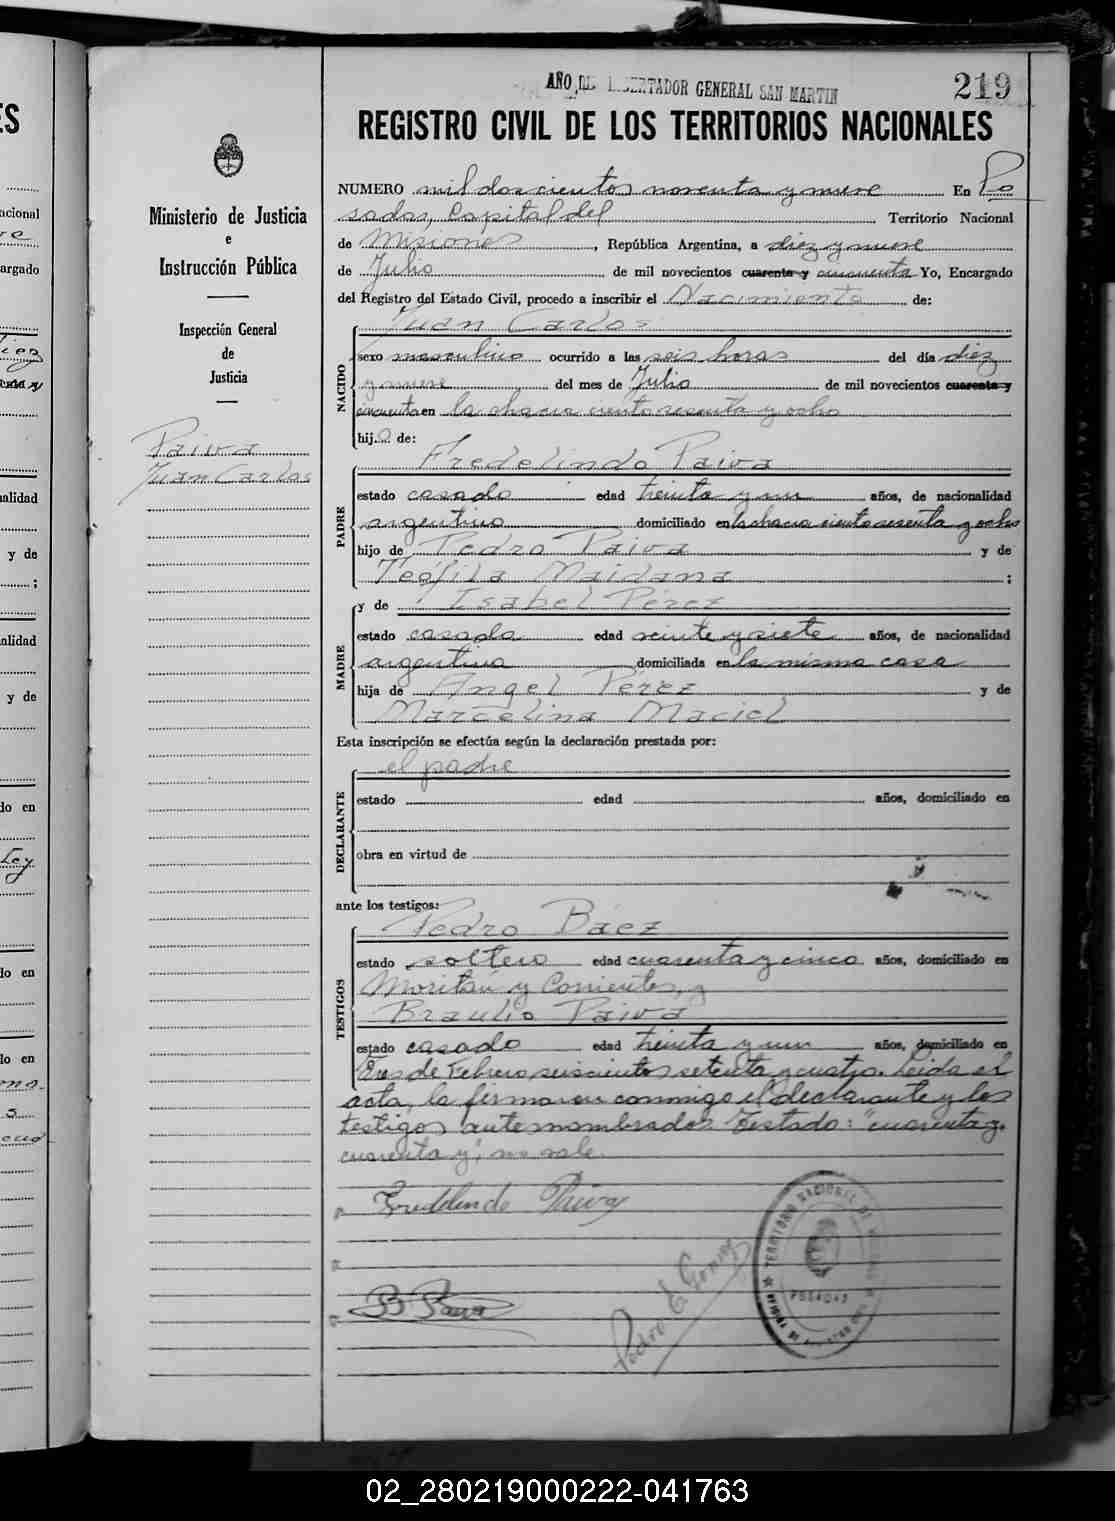 AÑO DEL LIBERTADOR GENERAL SAN MARTIN
219
REGISTRO CIVIL DE LOS TERRITORIOS NACIONALES
Ministerio de Justicia
e
Instrucción Pública
Inspección General
de
Justicia
Paiva
Juan Carlos
NUMERO mil doscientos noventa y nueve En Po
sadas, Capital del Territorio Nacional
de Misiones, República Argentina, a diez y nueve
de Julio de mil novecientos cuarenta y cincuenta Yo, Encargado
del Registro del Estado Civil, procedo a inscribir el Nacimiento de:
Juan Carlos
NACIDO
sexo masculino ocurrido a las seis horas del día diez
y nueve del mes de Julio de mil novecientos cuarenta y
cincuenta en la chacra ciento sesenta y ocho
hijo de:
Fredelindo Paiva
PADRE
estado casado edad treinta y un años, de nacionalidad
argentino domiciliado en la chacra ciento sesenta y ocho
hijo de Pedro Paiva y de
Teófila Maidana ;
y de Isabel Pérez
MADRE
estado casada edad veinte y siete años, de nacionalidad
argentina domiciliada en la misma casa
hija de Angel Pérez y de
Marcelina Maciel
Esta inscripción se efectúa según la declaración prestada por:
el padre
DECLARANTE
estado edad años, domiciliado en
obra en virtud de
ante los testigos:
Pedro Báez
TESTIGOS
estado soltero edad cuarenta y cinco años, domiciliado en
y Corrientes, y
Braulio Paiva
estado casado edad treinta y un años, domiciliado en
Tres de Febrero seiscientos setenta y cuatro. Leida el
acta, la firmaron conmigo el declarante y los
testigos antenombrados Testado: "cuarenta y,
cuarenta y", no vale.
Paiva
B Paiva
TERRITORIO NACIONAL DE MISIONES
POSADAS
02_280219000222-041763